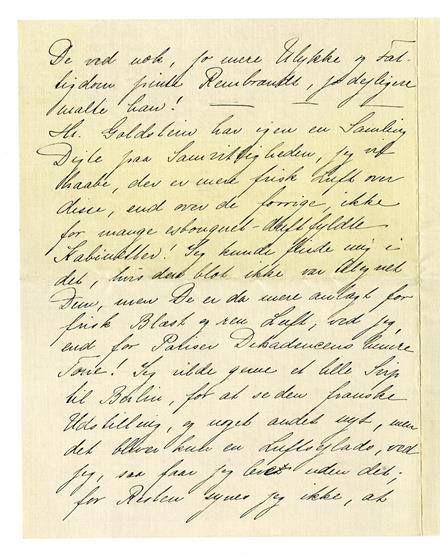 De ved nok, jo mere Ulykke og Fat-
tigdom pinte Rembrandt, jo dejligere
malte han! — — —
Hr. Goldstein har igen en Samling
Digte paa Samvittigheden, jeg vil
haabe, der er mere frisk Luft over
disse, end over de forrige, ikke
for mange esbouquet-duftfyldte
Kabinetter! Jeg kunde finde mig i
det, hvis det blot ikke var tilegnet
Dem, men De er da mere anlagt for
frisk Blæst og ren Luft, ved jeg,
end for Pariser Dekadencens
Tone! Jeg vilde gerne et lille Trip
til Berlin, for at se den franske
Udstilling, og noget andet nyt, men
det bliver kun en Luftseglads, ved
jeg, saa faar jeg uden det;
for Resten synes jeg ikke, at